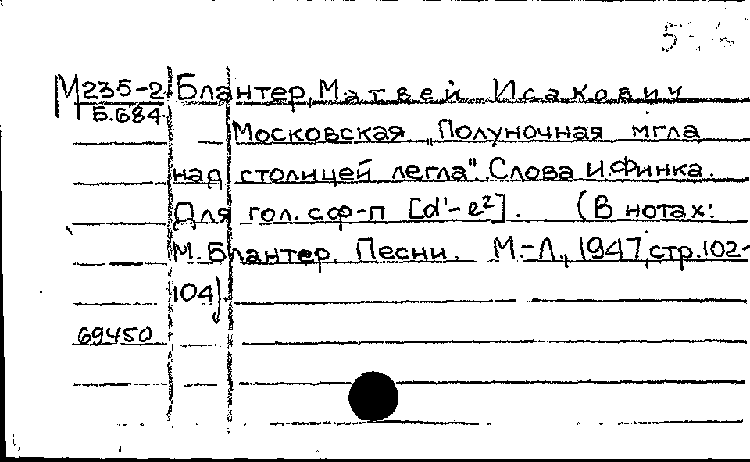 М235-2 Блантер, Матвей Исакович
Б.684
Московская „Полуночная мгла
над столицей легла". Слова И.Финка.
Для гол. с ф-п [d'-e²]. (В нотах:
М. Блантер. Песни. М.-Л., 1947, стр.102-
104).
69450